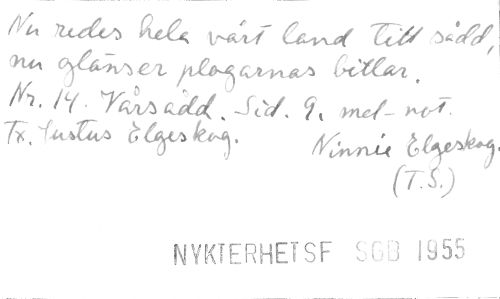 Nu redes hela vårt land till sådd,
nu glänser plogarnas billar.
Nr. 14. Vårsådd. Sid. 9. mel-not.
Tx. Justus Elgeskog. Ninnie Elgeskog.
(T.S.)
NYKTERHETSF SGB 1955